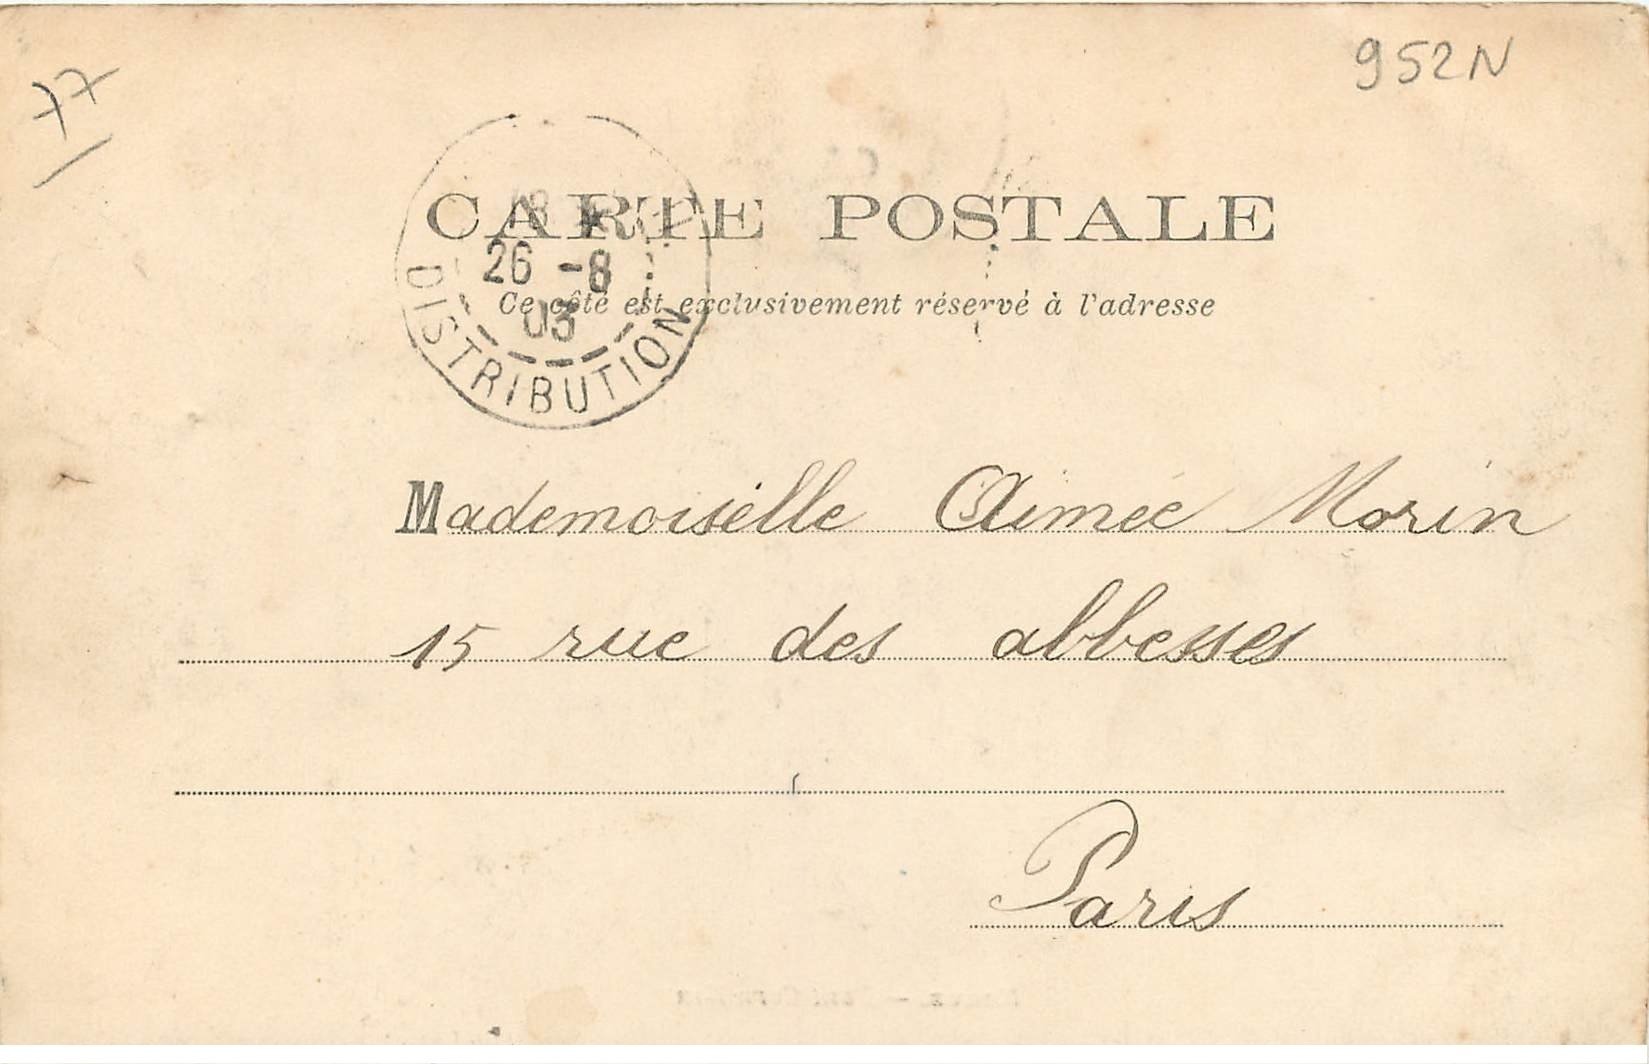 77
952N
CARTE POSTALE
26 -8
03
DISTRIBUTION
Ce côté est exclusivement réservé à l'adresse
Mademoiselle Aimée Morin
15 rue des abbesses
Paris